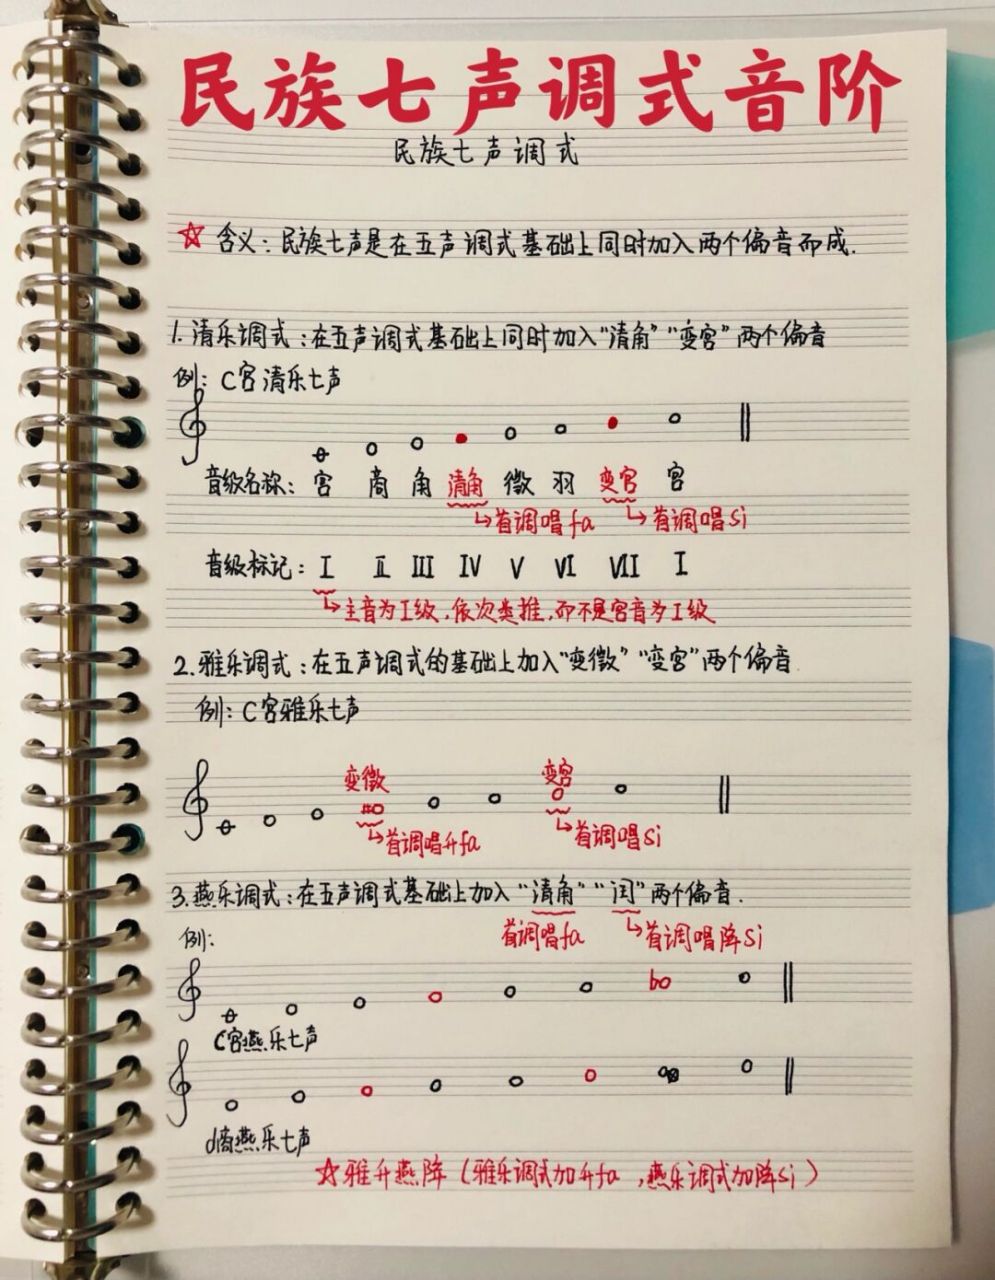 民族七声调式音阶
民族七声调式
☆ 含义：民族七声是在五声调式基础上同时加入两个偏音而成.
1. 清乐调式：在五声调式基础上同时加入“清角”“变宫”两个偏音
例：C宫清乐七声
音级名称：宫 商 角 清角 徵 羽 变宫 宫
首调唱fa 首调唱si
音级标记：I II III IV V VI VII I
主音为I级，依次类推，而不是宫音为I级
2. 雅乐调式：在五声调式的基础上加入“变徵”“变宫”两个偏音
例：C宫雅乐七声
变徵 变宫
首调唱升fa 首调唱si
3. 燕乐调式：在五声调式基础上加入“清角”“闰”两个偏音.
首调唱fa 首调唱降si
例：
C宫燕乐七声
d商燕乐七声
☆雅升燕降（雅乐调式加升fa，燕乐调式加降si）